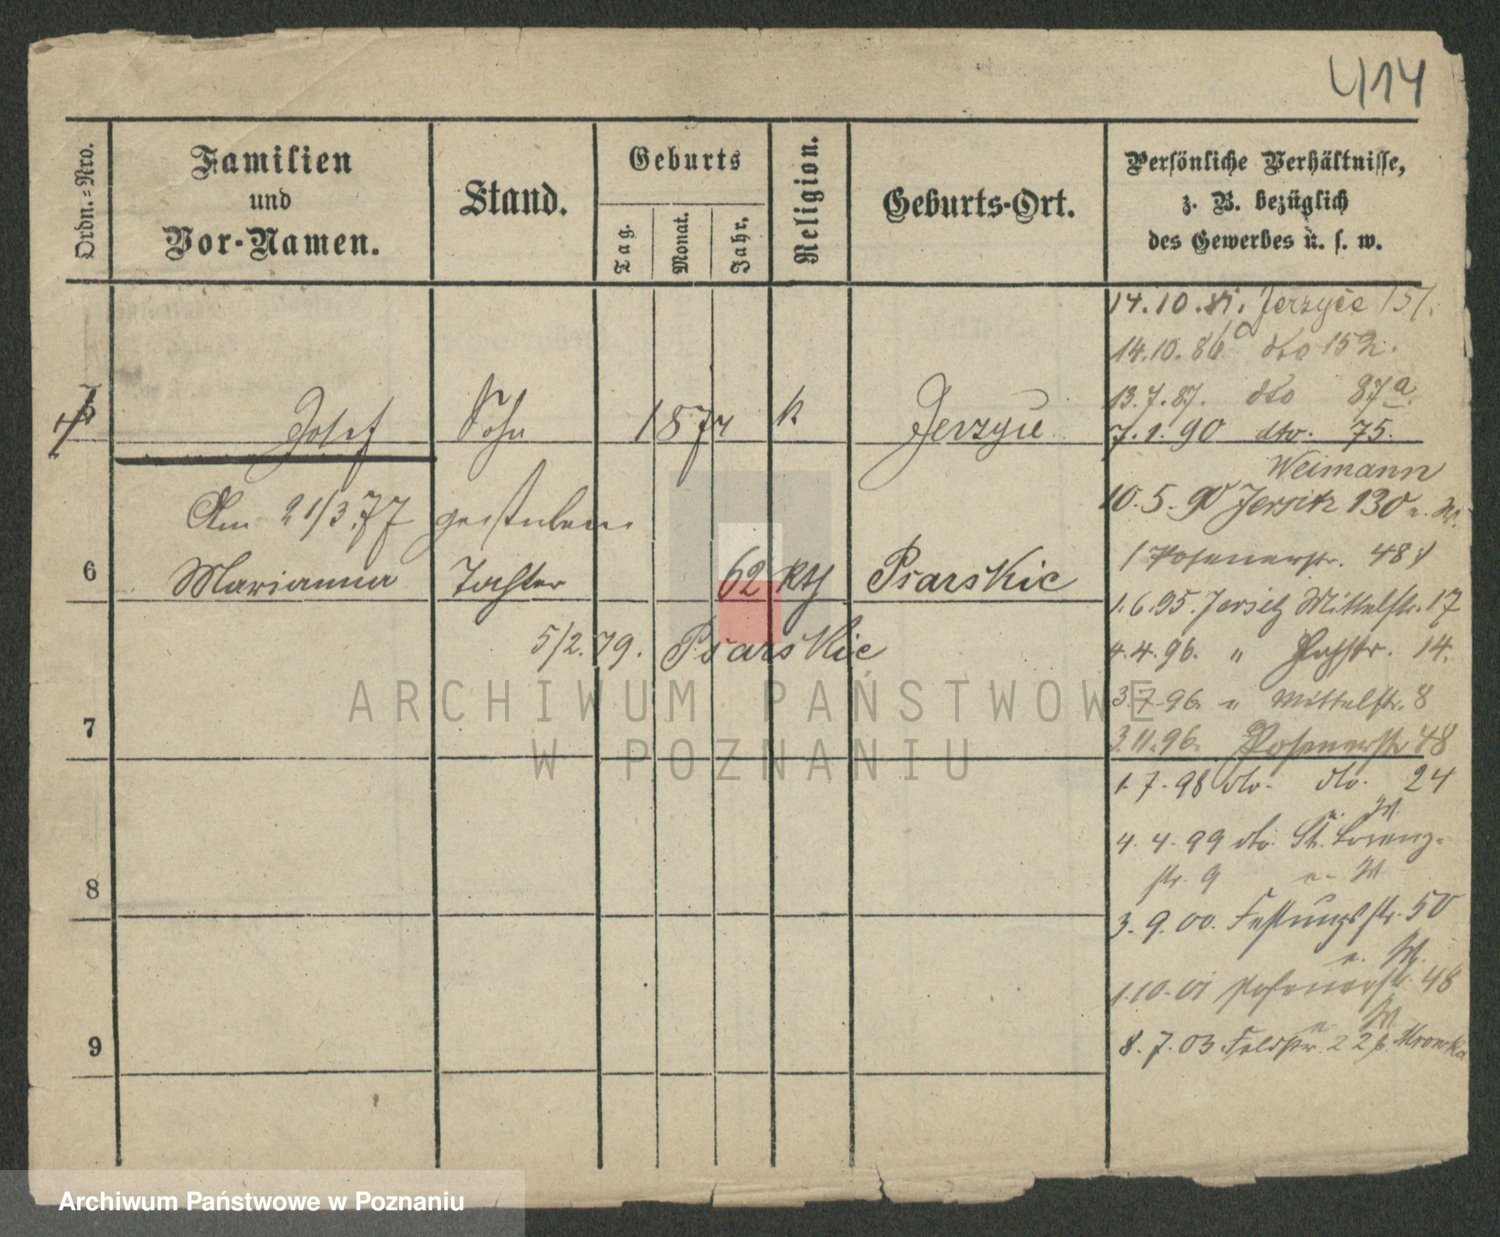 414
Ordn.-Nro.
Familien
und
Vor-Namen.
Stand.
Geburts
Tag.
Monat.
Jahr.
Religion.
Geburts-Ort.
Persönliche Verhältnisse,
z. B. bezüglich
des Gewerbes u. s. w.
14.10. Jerzyce 151.
14.10.86. dto 152.
13.7.87. dto 87a.
Josef Sohn 1874 k Jerzyce
7.1.90 dto. 75.
Weimann
Am 21/3.77 gestorben.
10.5.90 Jersitz 130
Posenerstr. 48
6 Marianna Tochter 62 kth Psarskie
1.6.95. Jersitz Mittelstr. 17
5/2.79. Psarskie
4.4.96. " 14.
3.7.96 " Mittelstr. 8
3.11.96. Posenerstr 48
7
1.7.98 dto. dto. 24
4.4.99 dto. St. Lorenz-
str. 9
8
3.9.00. Festungsstr. 50
1.10.01 Posenerstr. 48
9
8.7.03 Feldstr. 22 b. Mrowka
ARCHIWUM PAŃSTWOWE
W POZNANIU
Archiwum Państwowe w Poznaniu